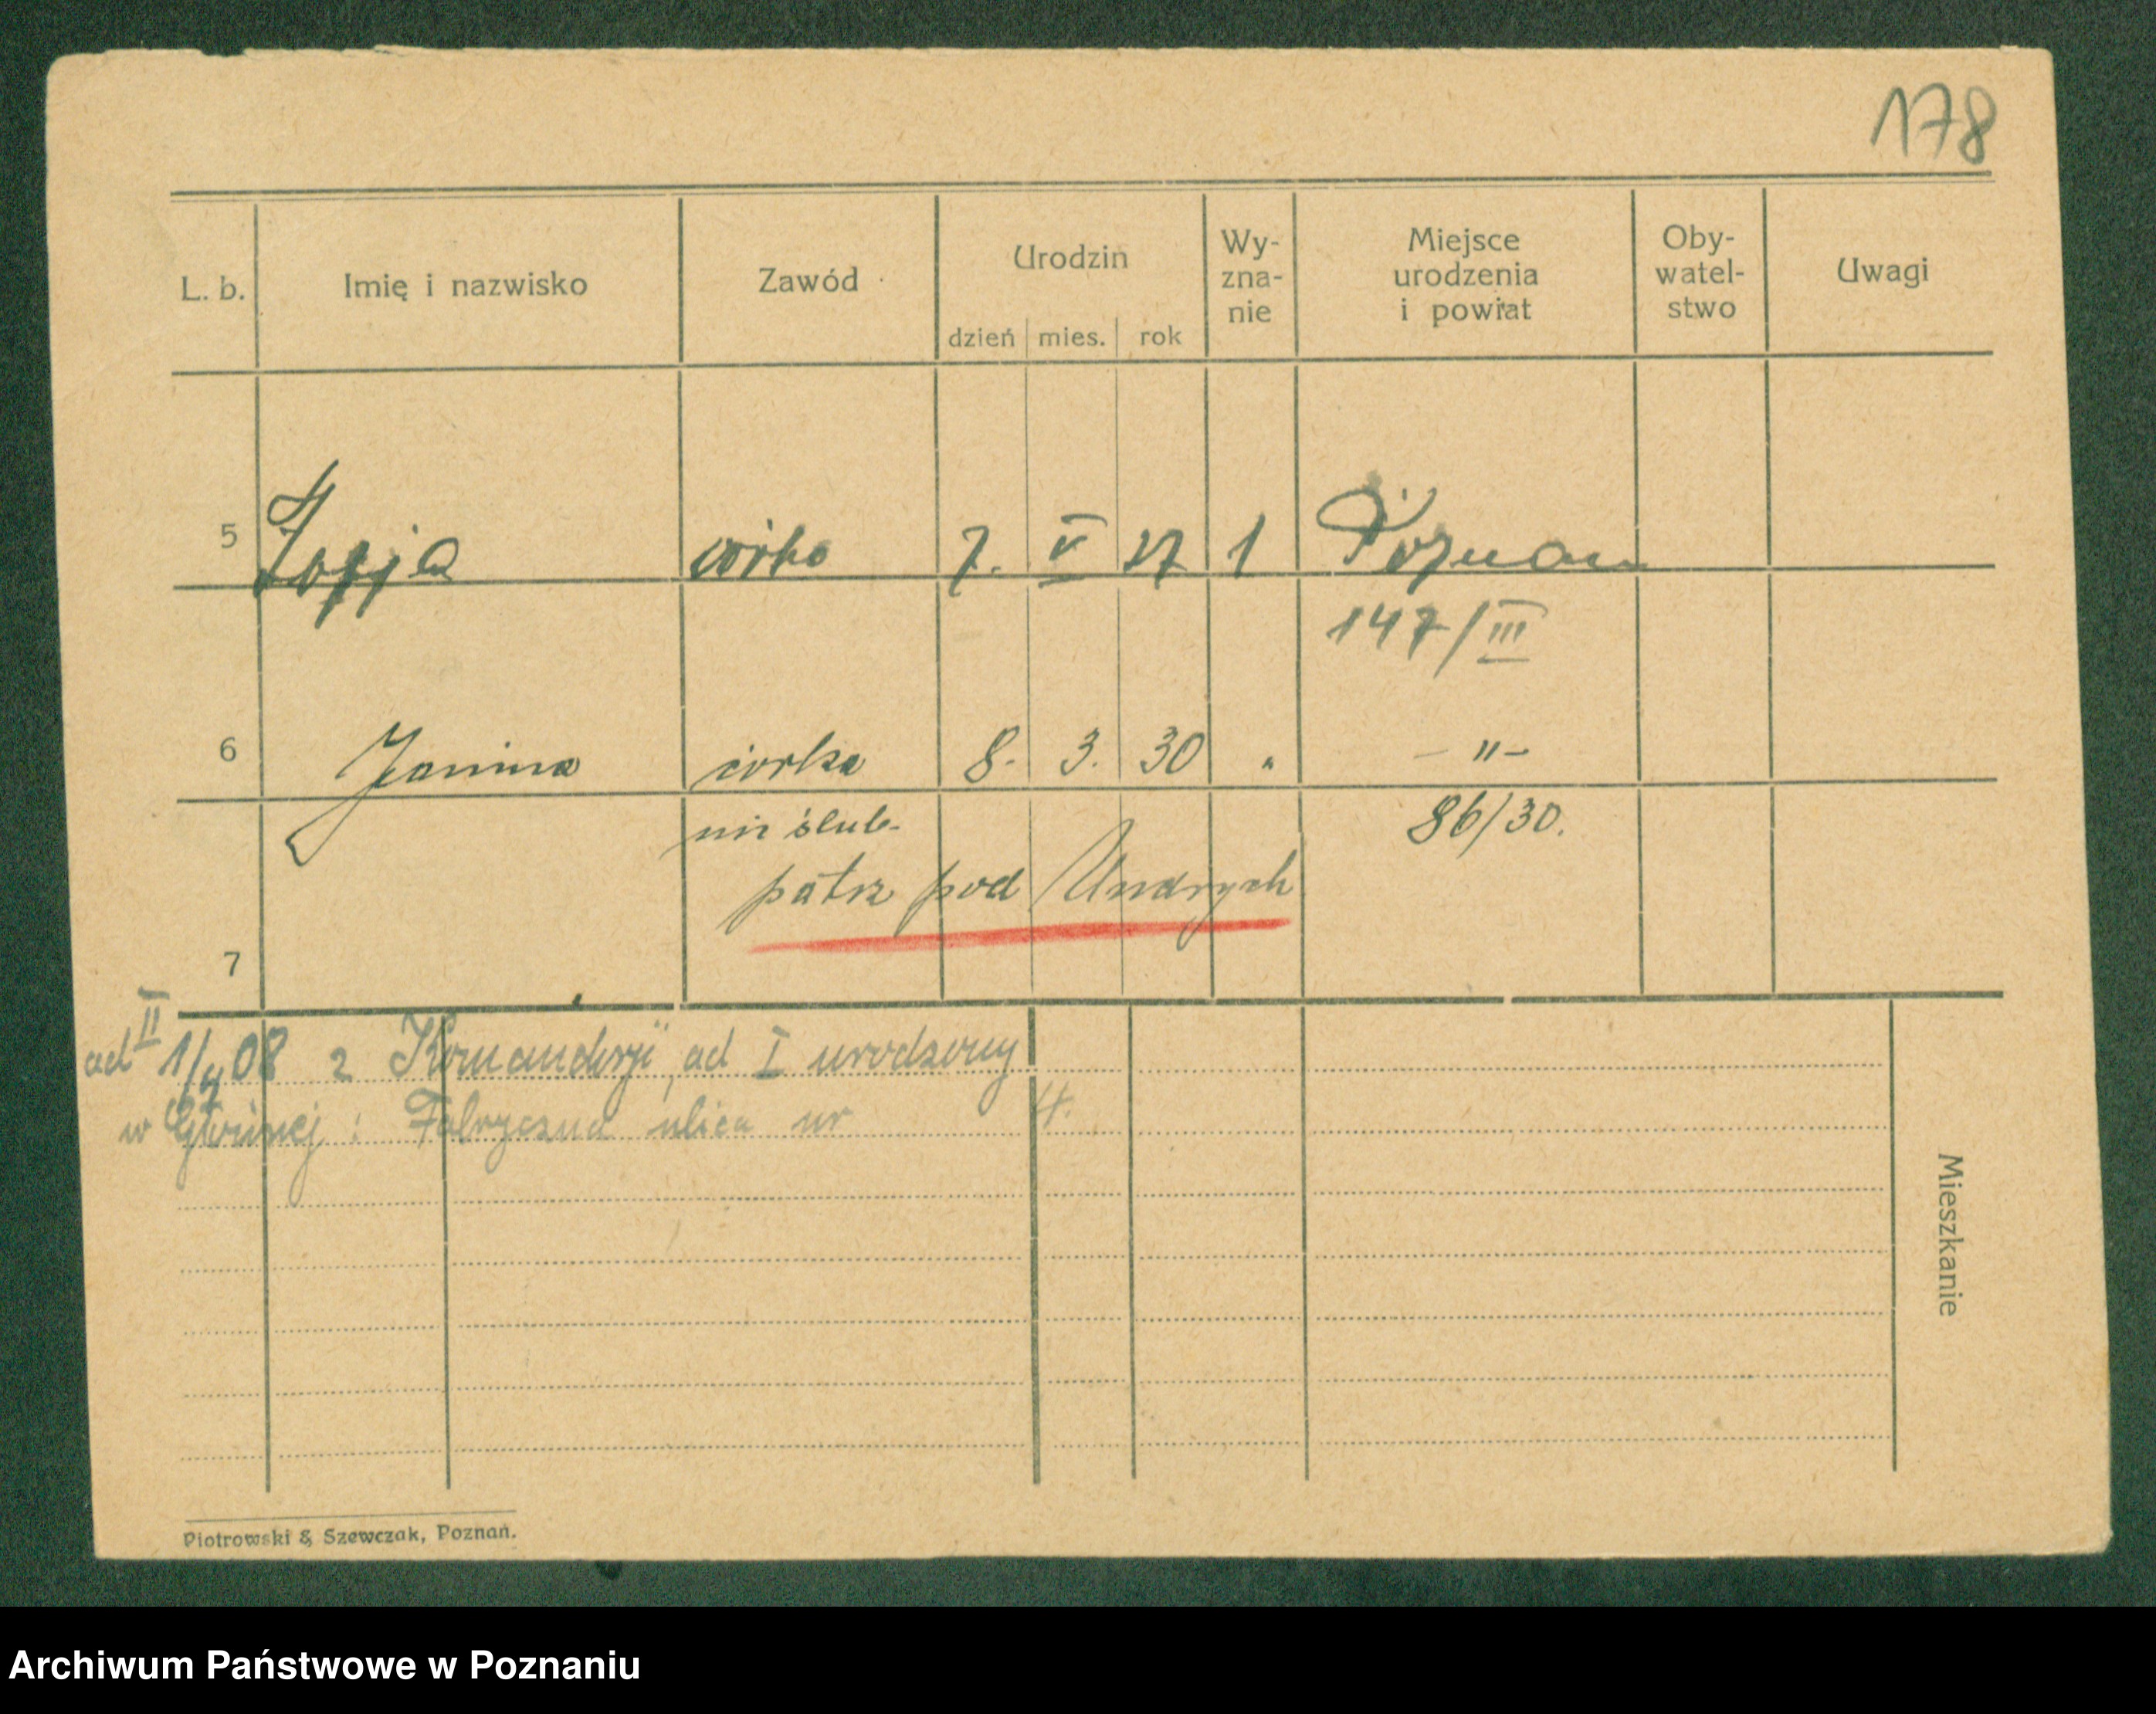 178
L. b. Imię i nazwisko Zawód Urodzin dzień mies. rok Wy-zna-nie Miejsce urodzenia i powiat Oby-watel-stwo Uwagi
5 Zofja córka 7. V 27 1 Poznań
147/III
6 Janina córka 8. 3. 30 " – " –
nie ślub- 86/30.
patrz pod Undrych
7
ad II 1/4 08 z Komandorji, ad I urodzony
w Głównej: Fabryczna ulica nr 4.
Mieszkanie
Piotrowski & Szewczak, Poznań.
Archiwum Państwowe w Poznaniu